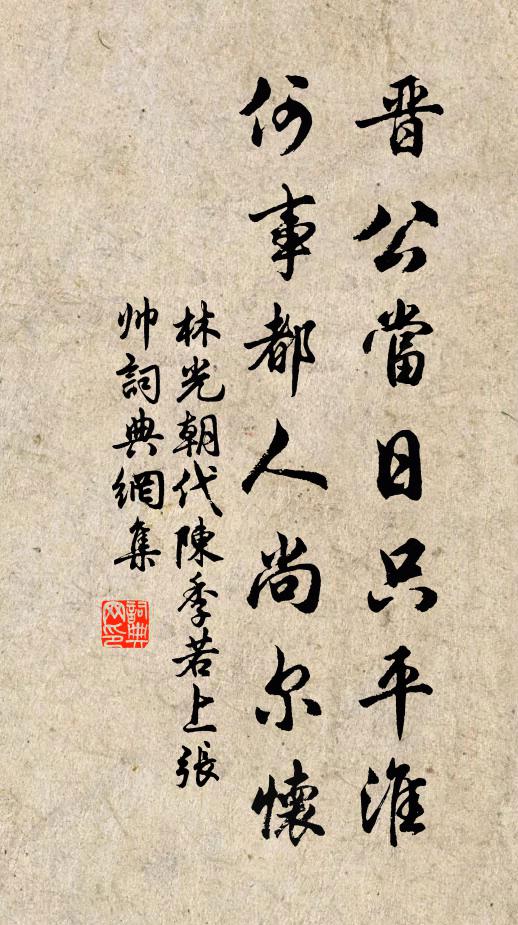 晋公當日只平淮
何事都人尚尔懷
林光朝代陳季若上張
帅詞典網集
詞典
网印